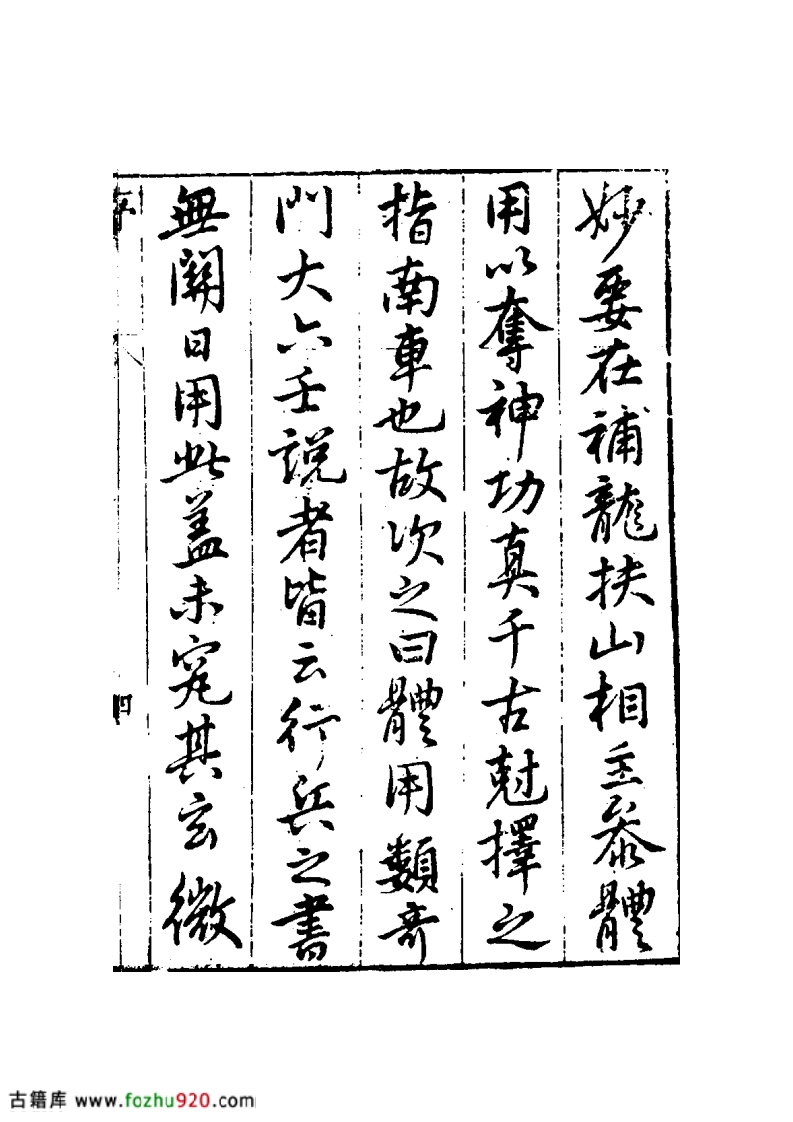 妙要在補龍扶山相主叅體
用以奪神功真千古尅擇之
指南車也故次之曰體用類奇
門大六壬說者皆云行兵之書
無關日用此蓋未究其玄微
序
四
古籍库 www.fozhu920.com